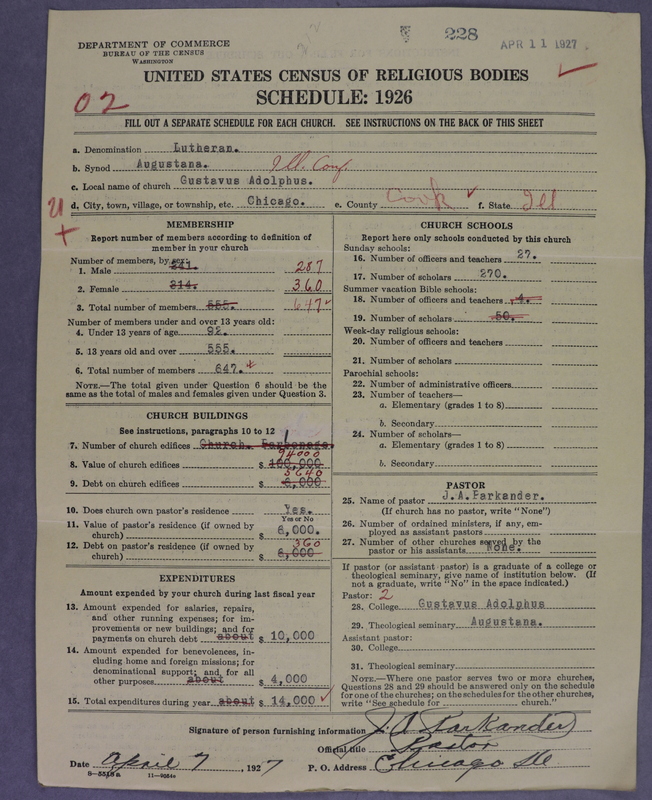 228
APR 11 1927
DEPARTMENT OF COMMERCE
BUREAU OF THE CENSUS
WASHINGTON
UNITED STATES CENSUS OF RELIGIOUS BODIES
SCHEDULE: 1926
02
FILL OUT A SEPARATE SCHEDULE FOR EACH CHURCH. SEE INSTRUCTIONS ON THE BACK OF THIS SHEET
a. Denomination Lutheran.
b. Synod Augustana. Ill. Conf.
c. Local name of church Gustavus Adolphus.
d. City, town, village, or township, etc. Chicago. e. County Cook f. State Ill
MEMBERSHIP
Report number of members according to definition of
member in your church
Number of members, by sex:
1. Male 241. 287
2. Female 314. 360
3. Total number of members 555. 647
Number of members under and over 13 years old:
4. Under 13 years of age 92.
5. 13 years old and over 555.
6. Total number of members 647.
NOTE.—The total given under Question 6 should be
same as the total of males and females given under Question 3.
CHURCH BUILDINGS
See instructions, paragraphs 10 to 12
7. Number of church edifices Church. Parsonage. 1
94000
8. Value of church edifices $ 100,000
5640
9. Debt on church edifices $ 6,000
10. Does church own pastor's residence Yes.
Yes or No
11. Value of pastor's residence (if owned by
church) $ 6,000.
12. Debt on pastor's residence (if owned by 360
church) $ 6,000
EXPENDITURES
Amount expended by your church during last fiscal year
13. Amount expended for salaries, repairs,
and other running expenses; for im-
provements or new buildings; and for
payments on church debt about $ 10,000
14. Amount expended for benevolences, in-
cluding home and foreign missions; for
denominational support; and for all
other purposes about $ 4,000
15. Total expenditures during year about $ 14,000
CHURCH SCHOOLS
Report here only schools conducted by this church
Sunday schools:
16. Number of officers and teachers 27.
17. Number of scholars 270.
Summer vacation Bible schools:
18. Number of officers and teachers 4.
19. Number of scholars 50.
Week-day religious schools:
20. Number of officers and teachers
21. Number of scholars
Parochial schools:
22. Number of administrative officers
23. Number of teachers—
a. Elementary (grades 1 to 8)
b. Secondary
24. Number of scholars—
a. Elementary (grades 1 to 8)
b. Secondary
PASTOR
25. Name of pastor J.A.Parkander.
(If church has no pastor, write "None")
26. Number of ordained ministers, if any, em-
ployed as assistant pastors
27. Number of other churches served by the
pastor or his assistants None.
If pastor (or assistant pastor) is a graduate of a college or
theological seminary, give name of institution below. (If
not a graduate, write "No" in the space indicated.)
Pastor: 2
28. College Gustavus Adolphus
29. Theological seminary Augustana.
Assistant pastor:
30. College
31. Theological seminary
NOTE.—Where one pastor serves two or more churches,
Questions 28 and 29 should be answered only on the schedule
for one of the churches; on the schedules for the other churches,
write "See schedule for church."
Signature of person furnishing information J. A. Parkander
Official title Pastor
Date April 7, 1927 P. O. Address Chicago Ill
11—9554